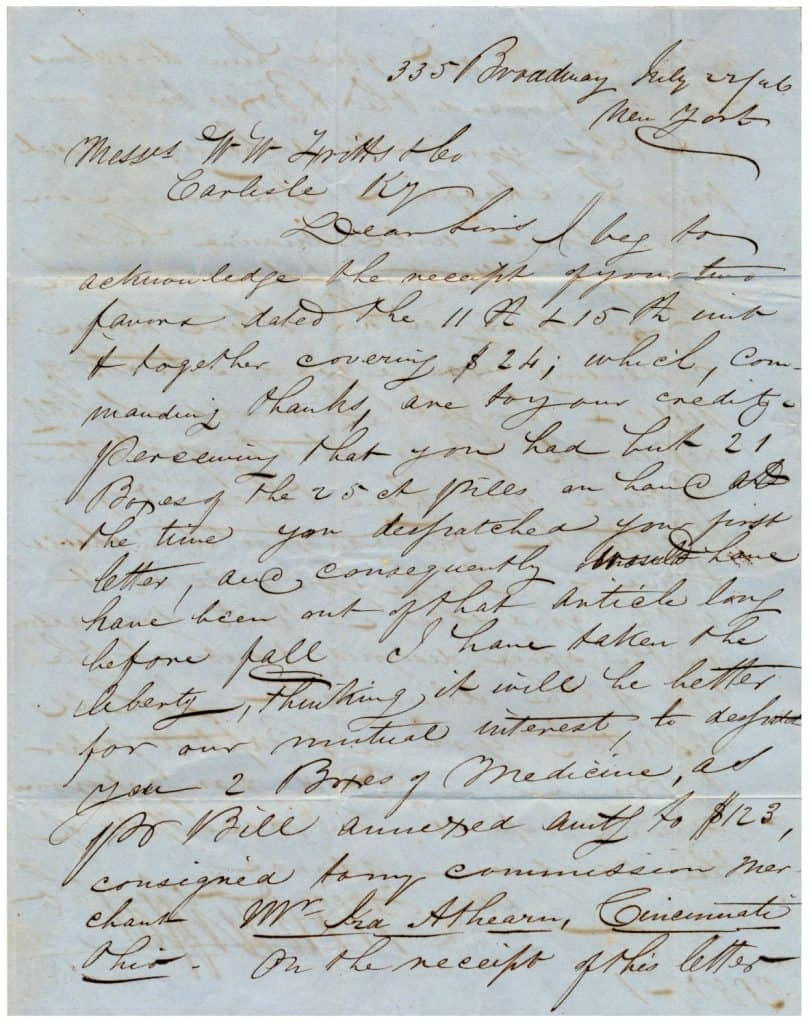 335 Broadway July 22/46
New York
Messrs W W Fritts & Co
Carlisle Ky
Dear Sirs I beg to
acknowledge the receipt of your two
favors dated the 11th & 15th inst
& together covering $24; which, com-
manding thanks, are to your credit.
Perceiving that you had but 21
Boxes of the 25 ct pills on hand at
the time you despatched your first
letter, and consequently would have
have been out of that article long
before fall I have taken the
liberty, thinking it will be better
for our mutual interest, to despatch
you 2 Boxes of Medicine, as
pr Bill annexed amtg to $123,
consigned to my commission mer-
chant Mr Ira Athearn, Cincinnati
Ohio. On the receipt of this letter